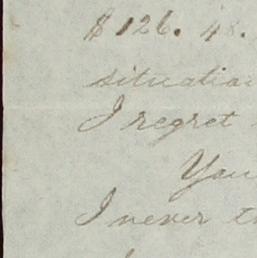 $126.48.
situation
I regret
You
I never